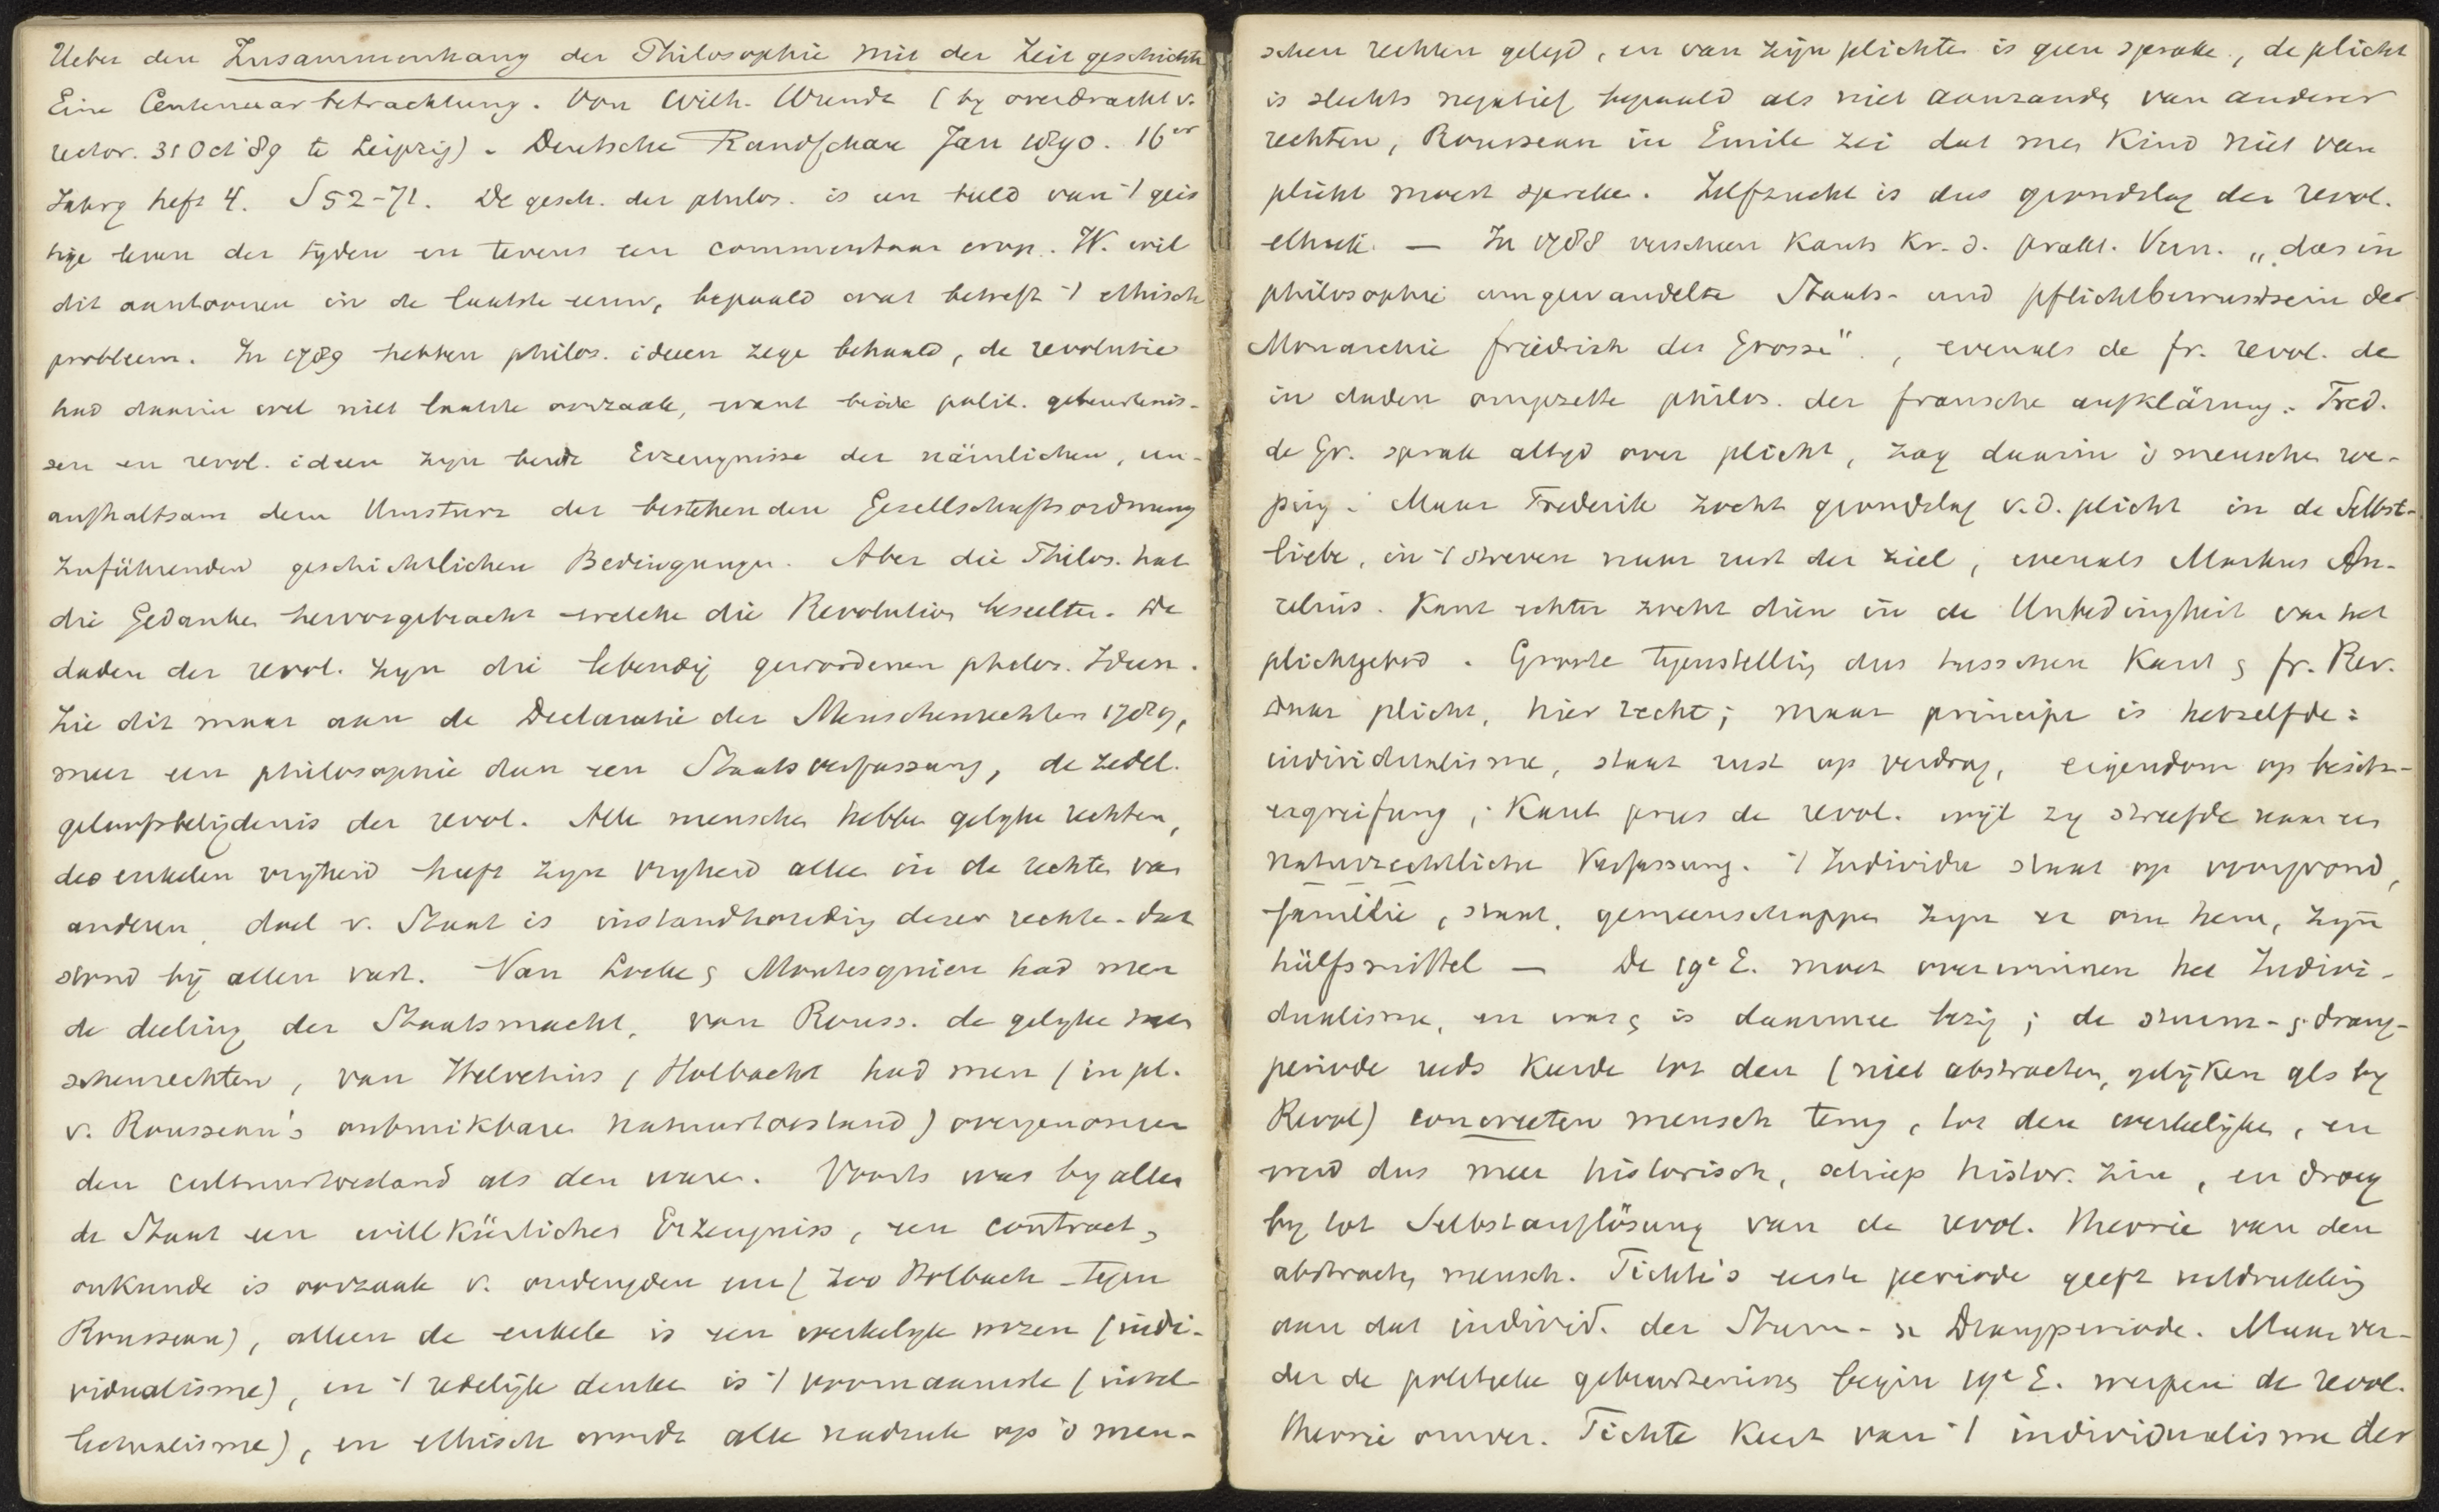 Ueber den Zusammenhang der Philosophie mit der Zeitgeschichte
Eine Centenarbetrachtung. Von Wilh. Wundt (by overdracht v.
rector. 31 Oct '89 te Leipzig). Deutsche Rundschau Jan 1890. 16er
Jahrg heft 4. S 52-71. De gesch. der philos. is een beeld van 't gees
tige leven der tyden en tevens een commentaar erop. W. wil
dit aantoonen in de laatste eeuw, bepaald wat betreft 't ethisch
probleem. In 1789 hebben philos. ideeen zege behaald, de revolutie
had daarin wel niet laatste oorzaak, want beide polit. gebeurtenis-
sen en revol. ideen zyn beide Erzeugnisse der nämlichen, un-
aufhaltsam dem Umsturz der bestehenden Gesellschaftsordnung
zuführenden geschichtlichen Bedingungen. Aber die Philos. hat
die Gedanken hervorgebracht welche die Revolution beseelten. De
daden der revol. zyn die lebendig gewordenen philos. Ideen.
Zie dit maar aan de Declaratie der Menschenrechten 1789,
meer een philosophie dan een Staatsverfassung, de zedel.
geloofsbelijdenis der revol. Alle menschen hebben gelyke rechten,
des enkelen vryheid heeft zyn vryheid alleen in de rechten van
anderen, doel v. Staat is instandhouding dezer rechten - dat
stond bij allen vast. Van Locke & Montesquieu had men
de deeling der Staatsmacht, van Rouss. de gelyke men
schenrechten, van Helvetius, Holbach had men (in pl.
v. Rousseau's onbruikbaren natuurtoestand) overgenomen
den cultuurtoestand als den waren. Voorts was by allen
de Staat een willkürliches Erzeugniss, een contract,
onkunde is oorzaak v. ondeugden enz (zoo Holbach tegen
Rousseau), alleen de enkele is een werkelyk wezen (indi-
vidualisme), en 't redelijk denken is 't voornaamste (intel
lectualisme), en ethisch wordt alle nadruk op 's men-
schen rechten gelegd, en van zijn plichten is geen sprake, de plicht
is slechts negatief bepaald als niet aanranding van anderer
rechten, Rousseau in Emile zei dat men Kind niet van
plicht moest spreken. Zelfzucht is dus grondslag der revol.
ethiek. — In 1788 verscheen Kants Kr. d. prakt. Vern. „das in
philosophie umgewandelte Staats- und pflichtbewusstsein der
Monarchie friedrich des Grosse", evenals de fr. revol. de
in daden omgezette philos. der fransche aufklärung. Fred.
de Gr. sprak altyd over plicht, zag daarin 's menschen roe-
ping. Maar Frederik zocht grondslag v.d. plicht in de Selbst-
liebe, in 't streven naar rust der ziel, evenals Markus Au-
relius. Kant echter zocht dien in de Unbedingtheit van het
plichtgebod. Groote tegenstelling dus tusschen Kant & fr. Rev.
daar plicht, hier recht; maar principe is hetzelfde:
individualisme, staat rust op verdrag, eigendom op besitz-
ergreifung; Kant prees de revol. wijl zy streefde naar een
naturrechtliche Verfassung. 't Individu staat op voorgrond,
familie, staat, gemeenschappen zyn er om hem, zyn
hülfsmittel — De 19e E. moet overwinnen het Indivi-
dualisme, en was & is daarmee bezig; de sturm- & drang-
periode reeds keerde tot den (niet abstracten, gelijken als by
Revol) concreeten mensch terug, tot den werkelijken, en
werd dus meer historisch, schiep histor. zin, en droeg
by tot Selbstauflösung van de revol. theorie van den
abstracten mensch. Fichte's eerste periode geeft uitdrukking
aan dat individ. der Sturm- u Drangperiode. Maar ver-
der de politieke gebeurtenissen begin 19e E. werpen de revol.
theorie omver. Fichte keert van 't individualisme der